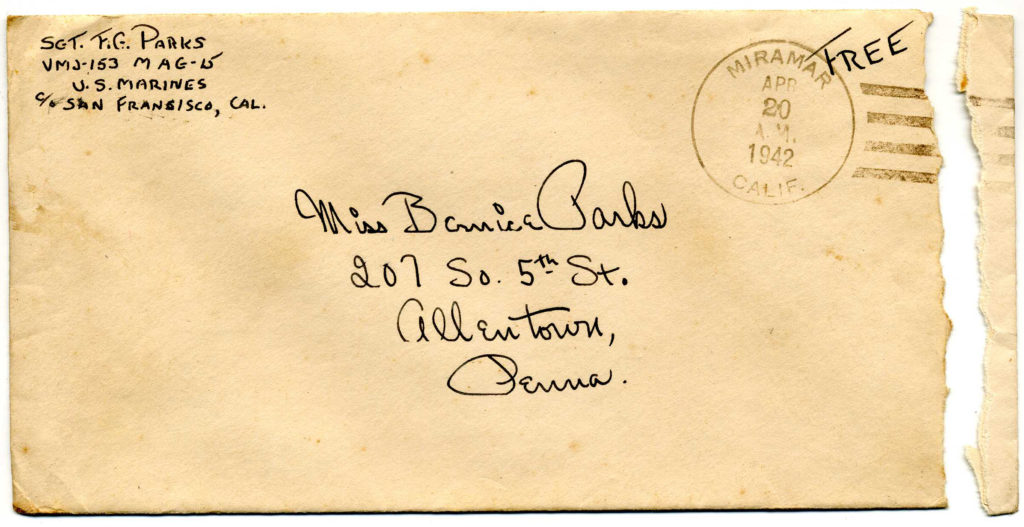 SGT. F.G. PARKS
VMJ-153 MAG-15
U.S. MARINES
c/o SAN FRANSISCO, CAL.
FREE
MIRAMAR
APR
20
A.M.
1942
CALIF.
Miss Bernice Parks
207 So. 5th St.
Allentown,
Penna.